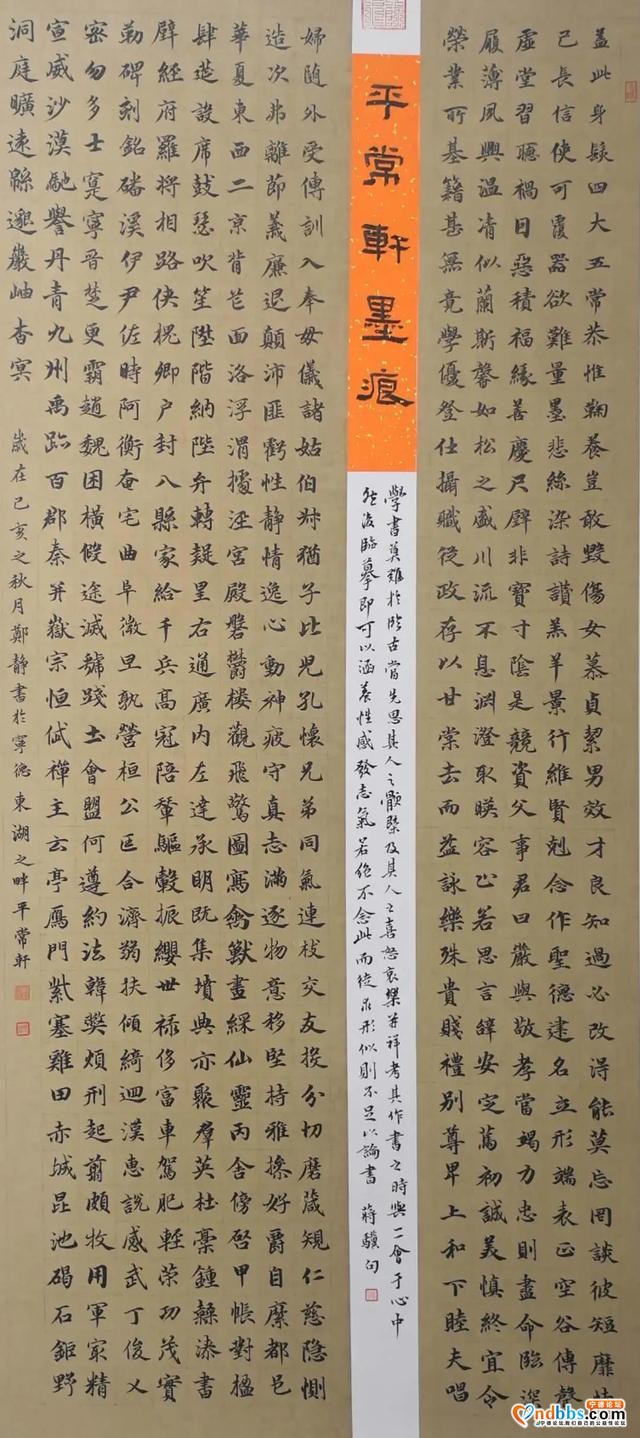 蓋此身髮四大五常恭惟鞠養豈敢毀傷女慕貞絜男效才良知過必改得能莫忘罔談彼短靡恃
己長信使可覆器欲難量墨悲絲染詩讚羔羊景行維賢剋念作聖德建名立形端表正空谷傳聲
虛堂習聽禍因惡積福緣善慶尺璧非寶寸陰是競資父事君曰嚴與敬孝當竭力忠則盡命臨深
履薄夙興溫凊似蘭斯馨如松之盛川流不息淵澄取暎容止若思言辭安定篤初誠美慎終宜令
榮業所基籍甚無竟學優登仕攝職從政存以甘棠去而益詠樂殊貴賤禮別尊卑上和下睦夫唱
平常軒墨痕
學書莫難於臨古當先思其人之槩及其人之喜怒哀樂并詳考其作書之時與一會于心中
然後臨摹即可以涵養性感發志氣若絶不念此而徒求形似則不足以論書 蔣驥句
婦隨外受傅訓入奉母儀諸姑伯叔猶子比兒孔懷兄弟同氣連枝交友投分切磨箴規仁慈隱惻
造次弗離節義廉退顛沛匪虧性靜情逸心動神疲守真志滿逐物意移堅持雅操好爵自縻都邑
華夏東西二京背芒面洛浮渭據涇宮殿磐鬱樓觀飛驚圖寫禽獸畫綵仙靈丙舍傍啓甲帳對楹
肆筵設席鼓瑟吹笙陞階納陛弁轉疑星右通廣內左達承明既集墳典亦聚群英杜稾鍾隸漆書
壁經府羅將相路俠槐卿户封八縣家給千兵高冠陪輦驅轂振纓世祿侈富車駕肥輕策功茂實
勒碑刻銘磻溪伊尹佐時阿衡奄宅曲阜微旦孰營桓公匡合濟弱扶傾綺迴漢惠說感武丁俊乂
密勿多士寔寧晉楚更霸趙魏困橫假途滅虢踐土會盟何遵約法韓弊煩刑起翦頗牧用軍最精
宣威沙漠馳譽丹青九州禹跡百郡秦并嶽宗恒岱禪主云亭鴈門紫塞雞田赤城昆池碣石鉅野
洞庭曠遠緜邈巖岫杳冥 歲在己亥之秋月鄭靜書於寧德東湖之畔平常軒
ndbbs.com 宁德论坛